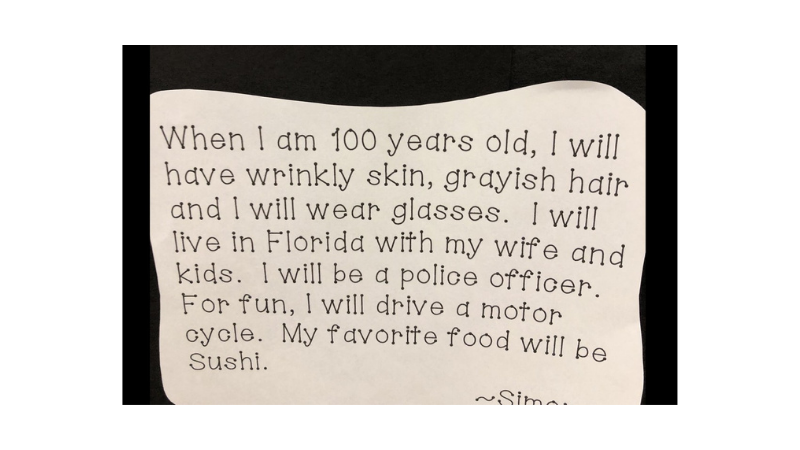 When I am 100 years old, I will
have wrinkly skin, grayish hair
and I will wear glasses. I will
live in Florida with my wife and
kids. I will be a police officer.
For fun, I will drive a motor
cycle. My favorite food will be
Sushi.